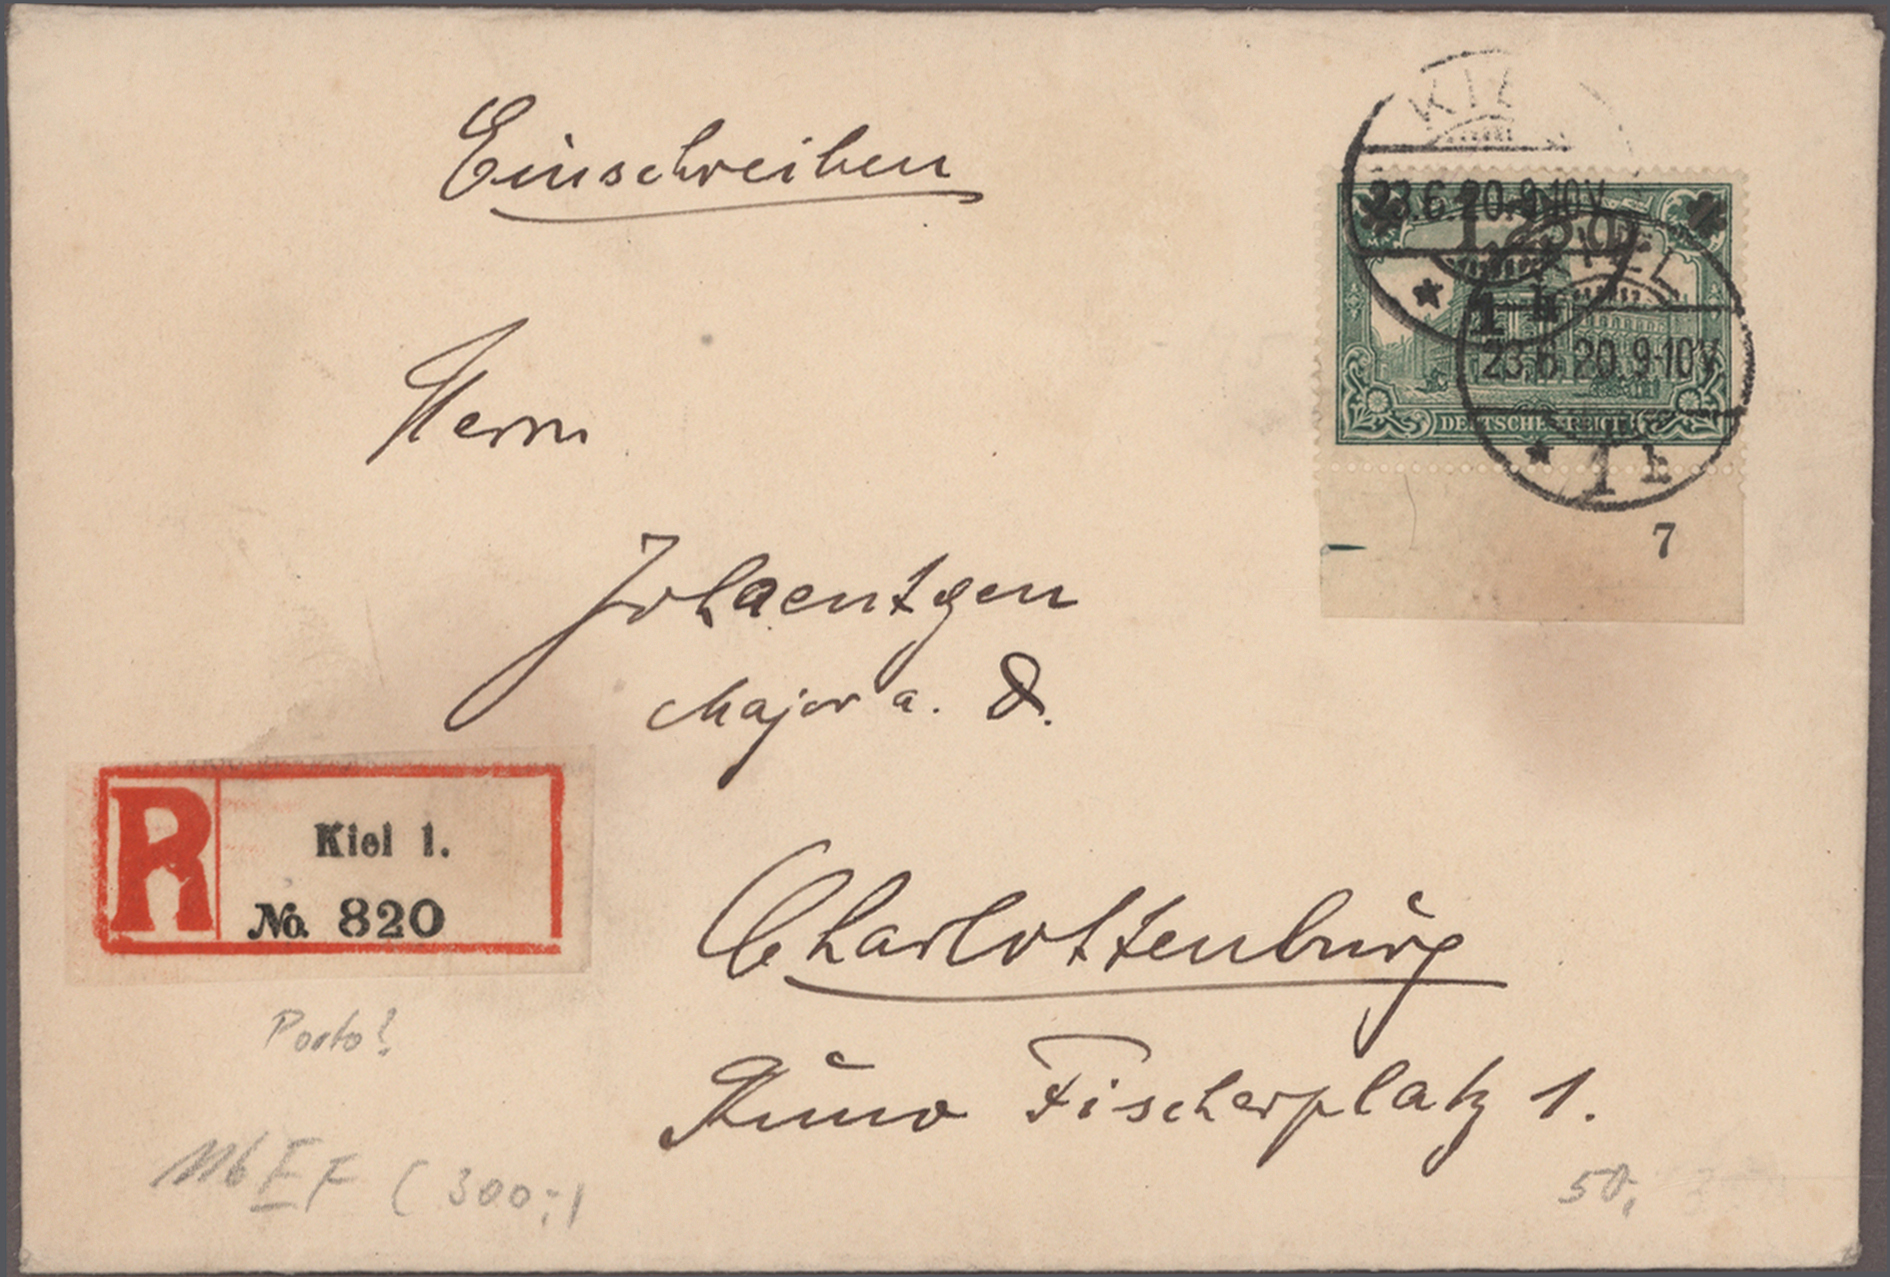 Einschreiben
KIEL
23.6.20.9-10V
1 h
KIEL
23.6.20.9-10V
1 h
DEUTSCHES REICH
7
Herrn
Major a. D.
R
Kiel 1.
No. 820
Charlottenburg
Kuno Fischerplatz 1.
Porto?
116 EF (300,-)
50,